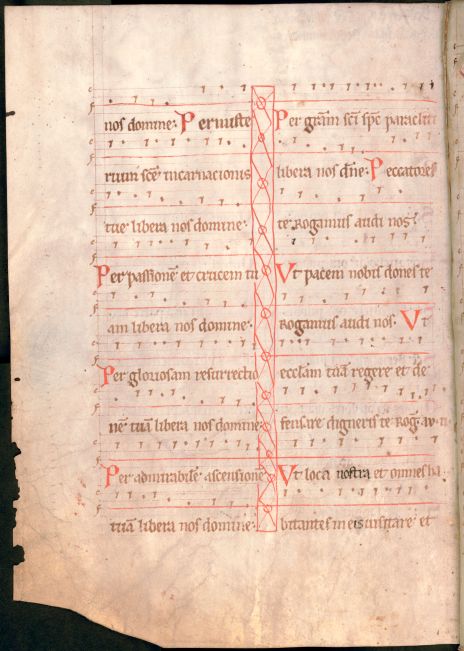 nos domine. Per miste
rium scē incarnacionis
tue libera nos domine.
Per passionē et crucem tu
am libera nos domine.
Per gloriosam resurrectio
nē tuā libera nos domine.
Per admirabilē ascensionē
tuā libera nos domine.
Per grām scī spc paracliti
libera nos dn̄e. Peccatores
te Rogamus audi nos.
Ut pacem nobis dones te
Rogamus audi nos. Ut
eccl̄am tuā regere et de
fensare digneris te Rog̅. au. n.
Ut loca nostra et omnes ha
bitantes in eis uisitare et